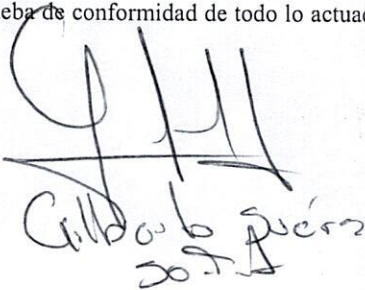 eba de conformidad de todo lo actuad
Gilberto Suárez
SOTA